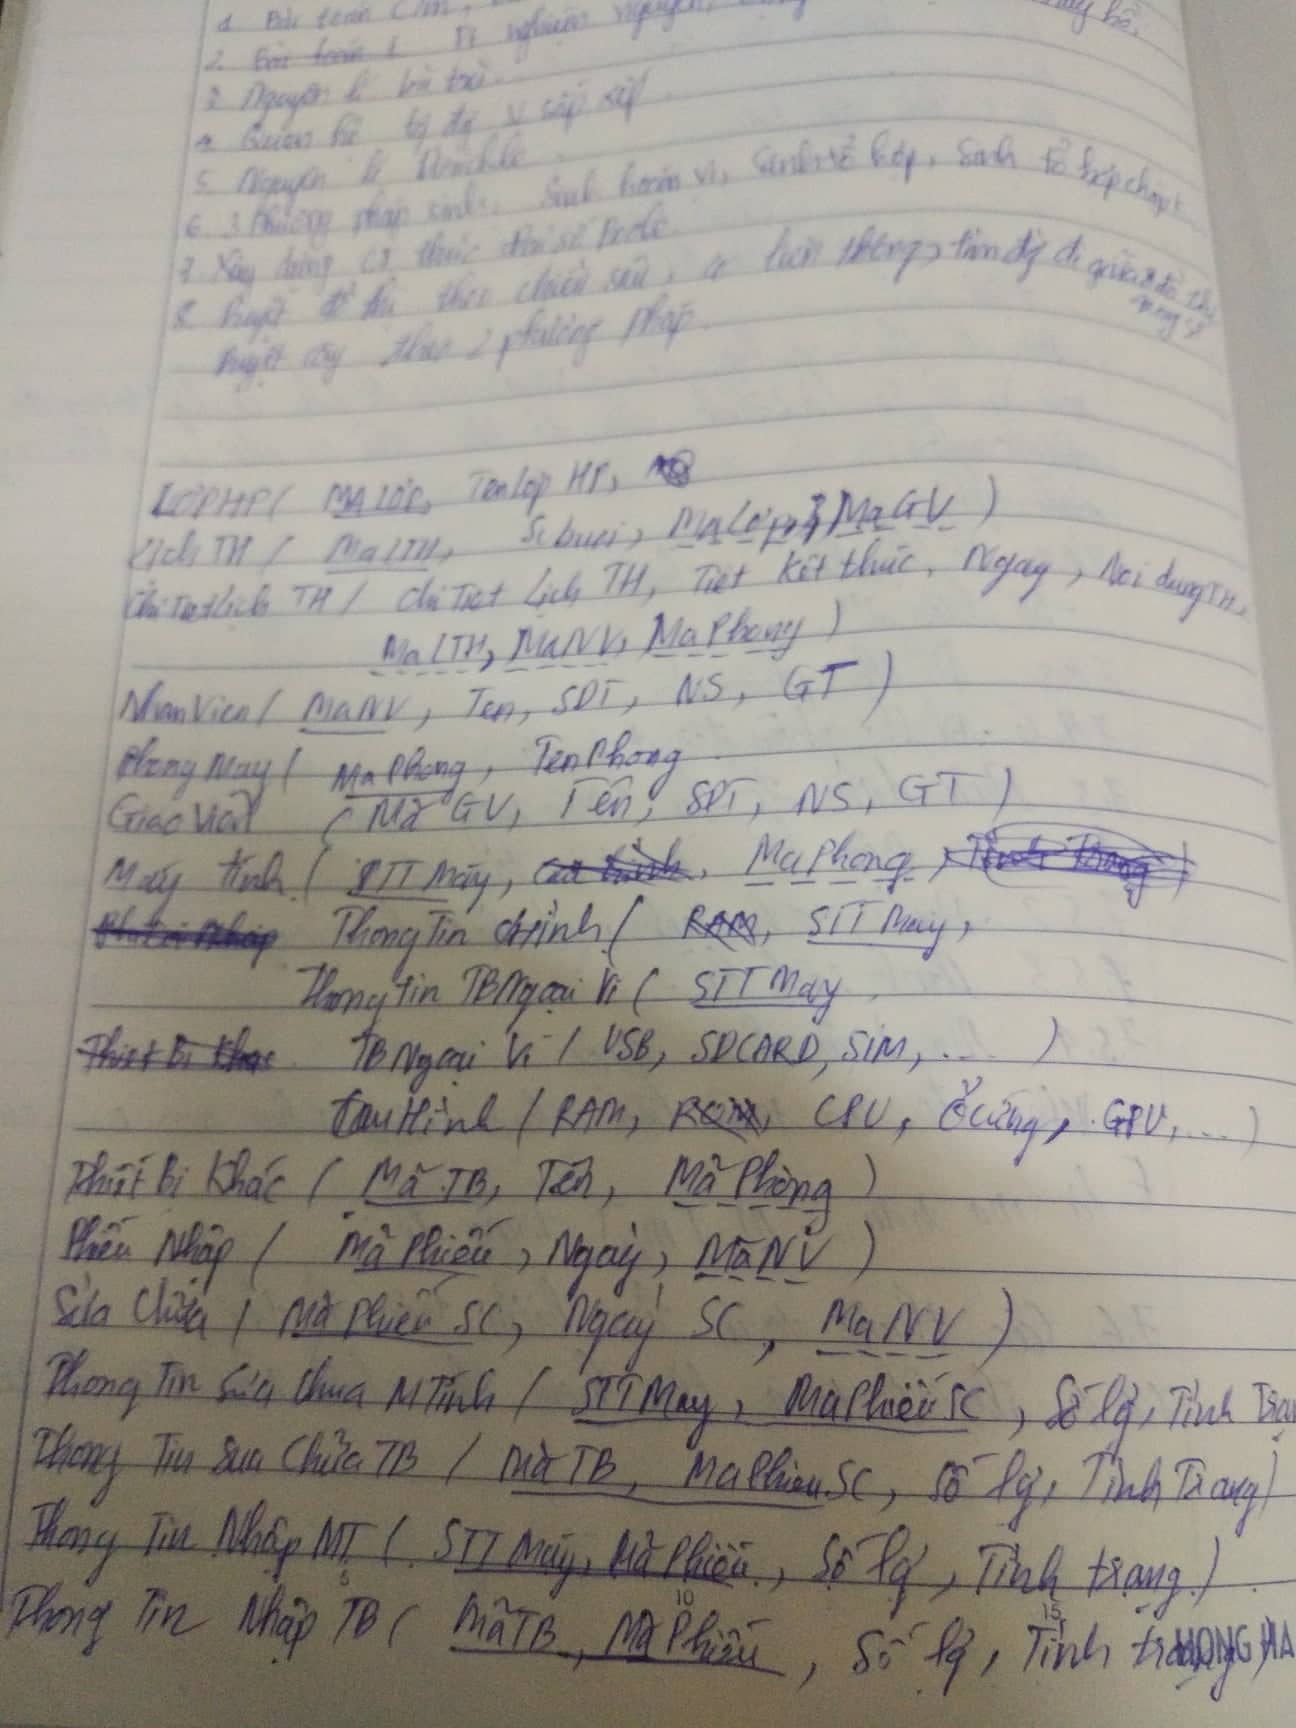 1. Bài toán
2. nghiệm nguyên,
3 Nguyên lí bù trừ.
4 Quan hệ tg đg sắp xếp
5. Nguyên lí Dirichlê
6. 3 Phương pháp sinh, Sinh hoán vị, Sinh tổ hợp, Sinh tổ hợp chập k
7 Xây dựng ct thức đại số
8. Duyệt đồ thị theo chiều sâu, liên thông, tìm đg đi giữa 2 đỉnh
Duyệt cây theo 2 phương pháp.
LỚPHP( MALỚP, TênlớpHP,
Lịch TH ( MaLTH, Sobuoi, MaLớpHP, MaGV )
ChiTietLich TH ( ChiTiet Lịch TH, Tiết kết thúc, Ngay, Noi dungTH,
MaLTH, MaNV, MaPhong )
NhanVien ( MaNV, Ten, SDT, NS, GT )
Phong May ( MaPhong, TenPhong
Giao Viên ( Mã GV, Tên, SDT, NS, GT )
Máy tính ( STT Máy, MaPhong,
ThongTin chính ( RAM, STT May,
Thong tin TBNgoại Vi ( STT May
TBNgoai Vi ( USB, SDCARD, SIM, .... )
Cau Hình ( RAM, ROM, CPU, Ổ cứng, GPU, ... )
Thiết Bị Khác ( Mã TB, Tên, Mã Phòng )
Phiếu Nhập ( Mã Phiếu, Ngày, MãNV )
Sửa Chữa ( Mã Phiếu SC, Ngay SC, MaNV )
Thong Tin Sửa Chua MTính ( STTMay, MaPhiếu SC, Số lg, Tình Trạ
Thong Tin Sua Chữa TB ( MãTB, MaPhieu SC, Số lg, Tình Trạng )
Thong Tin Nhập MT ( STT Máy, Mã Phiếu, Số lg, Tình trạng )
Thong Tin Nhập TB ( MãTB, Mã Phiếu, Số lg, Tình trạng )
5 10 15
HONG HA